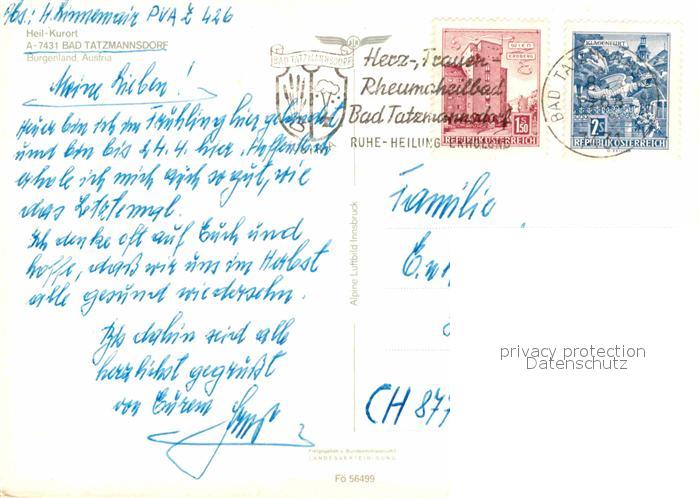 Abs.: H. Kinnemair PVA Z 426
Heil-Kurort
A-7431 BAD TATZMANNSDORF
Burgenland, Austria
Meine Lieben!
Heuer bin ich im Frühling hier gelandet
und bin bis 24.4. hier. Hoffentlich
erhole ich mich auch so gut, wie
das Letztemal.
Ich denke oft auf Euch und
hoffe, daß wir uns im Herbst
alle gesund wiedersehn.
Bis dahin seid alle
herzlichst gegrüßt
von Eurem
BAD TATZMANNSDORF
Herz-, Frauen-
Rheumaheilbad
Bad Tatzmannsdorf
RUHE-HEILUNG-ERHOLUNG
WIEN
ERDBERG
1.50
REPUBLIK ÖSTERREICH
KLAGENFURT
2S
REPUBLIK ÖSTERREICH
BAD TATZ
Alpine Luftbild Innsbruck
Familie
CH 877
privacy protection
Datenschutz
Freigegeben v. Bundesministerium f.
LANDESVERTEIDIGUNG
Fö 56499